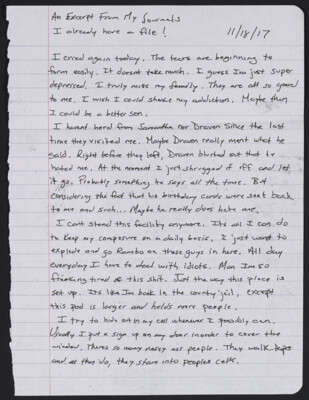 An Excerpt From My Journals
I already have a file!
11/18/17
I cried again today. The tears are beginning to
form easily. It doesnt take much. I guess Im just super
depressed. I truly miss my family. They are all so good
to me. I wish I could shake my addiction. Maybe then
I could be a better son.
I havent herd from Samantha nor Draven since the last
time they visited me. Maybe Draven really ment what he
said. Right before they left, Draven blurted out that he
hated me. At the moment I just shrugged if off and let
it go. Probably something he says all the time. But
considering the fact that his birthday cards were sent back
to me and such... Maybe he really does hate me.
I cant stand this facility anymore. Its all I can do
to keep my composure on a daily basis. I just want to
explode and go Rambo on these guys in here. All day
everyday I have to deal with idiots. Man Im so
freaking tired of this shit. Just the way this place is
set up. Its like Im back in the county jail, except
this pod is larger and holds more people.
I try to hide out in my cell whenever I possibly can.
Usually I put a sign up on my door inorder to cover the
window. Theres so many nosey ass people. They walk laps
and as they do, they stare into peoples cells.